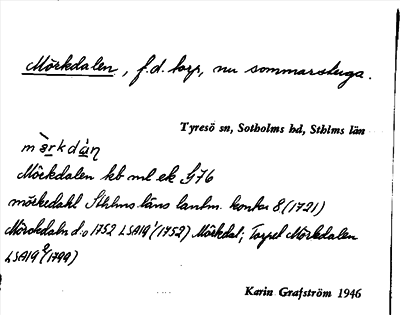 Mörkdalen, f.d. torp, nu sommarstuga.
Tyresö sn, Sotholms hd, Sthlms län
Mörkdalen kb ml ek G76
mörkedahl Sthlms läns lantm. kontor 8 (1721)
d:o 1752 LSA19 (1752) Mörkdal; Torpet Mörkdalen
LSA19 (1799)
Karin Grafström 1946